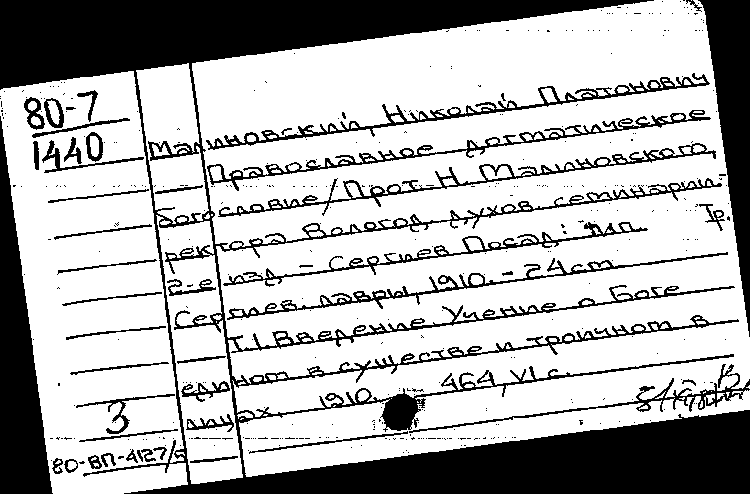 80-7
1440
Малиновский, Николай Платонович
Православное догматическое
богословие / Прот. Н. Малиновского,
ректора Вологод. духов. семинарии. -
2-е изд. - Сергиев Посад: тип. Тр.
Сергиев. лавры, 1910. - 24 cm
Т.1. Введение. Учение о Боге
едином в существе и троичном в
лицах. 1910. 464, VI с.
3
80-ВП-4127/5